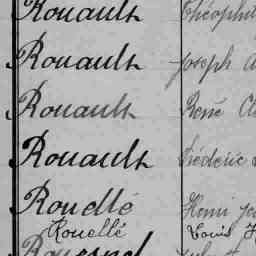 Rouault Théophil
Rouault Joseph A
Rouault René Cl
Rouault Frédéric
Rouellé Henri Jo
Rouellé Louis H
Rouesnel